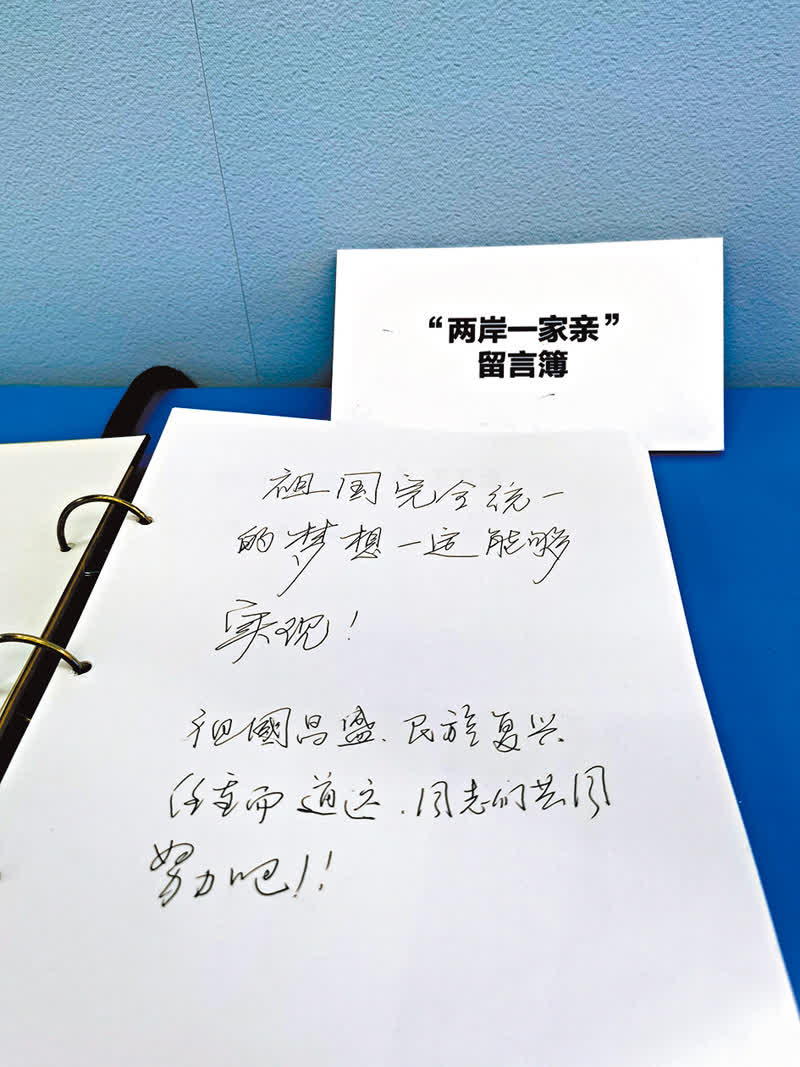 “两岸一家亲”
留言簿
祖国完全统一
的梦想一定能够
实现！
祖國昌盛、民族复兴
任重而道远、同志们共同
努力吧！！